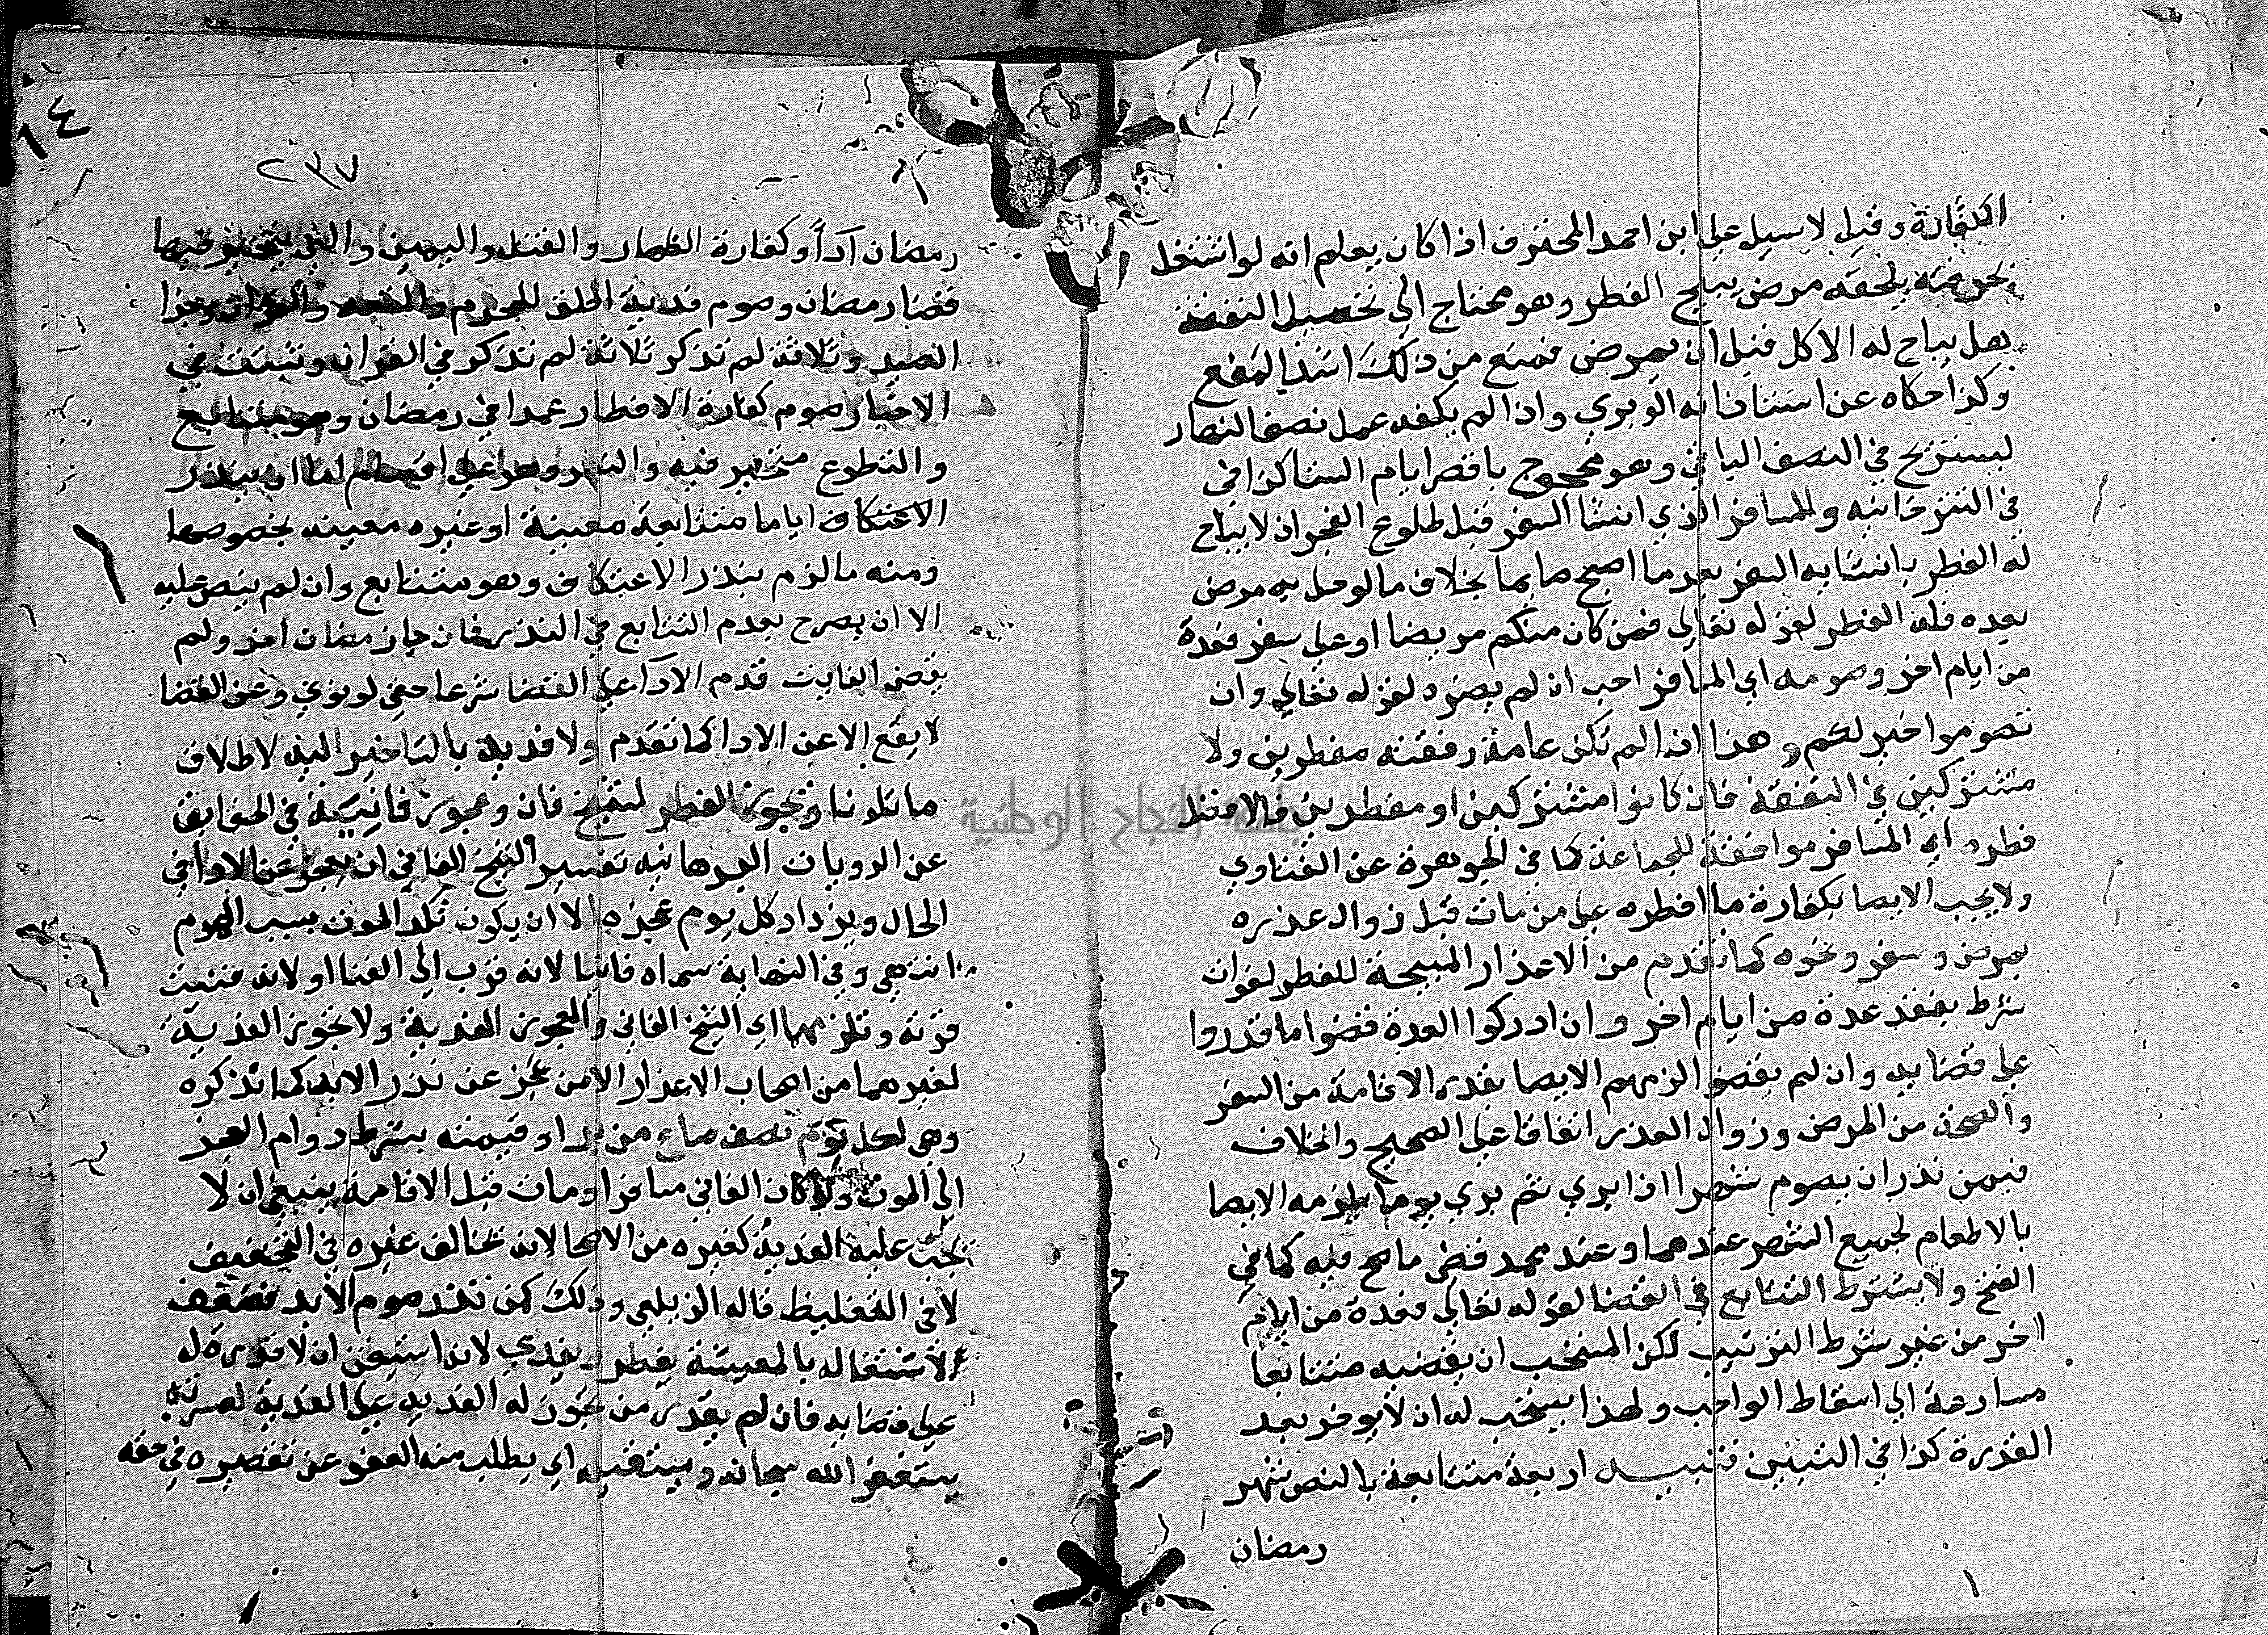 الكفارة وقيل لا سيل علي ابن احمد المحترف اذا كان يعلم انه لو اشتغل
بحرفته يلحقه مرض يبيح الفطر وهو محتاج الي تحصيل النفقة
هل يباح له الاكل قبل ان يمرض فمنع من ذلك اشد المنع
وكذا حكاه عن استاذ الوبري واذا لم يكفه عمل نصف النهار
ليستريح في النصف الباقي وهو محجوج باقصر ايام الشتا كذا في
في التترخانيه والمسافر الذي انشا السفر قبل طلوع الفجر اذ لا يباح
له الفطر بانشايه السفر بعد ما اصبح صايما بخلاف ما لو حل به مرض
بعده فله الفطر لقوله تعالي فمن كان منكم مريضا او علي سفر فعدة
من ايام اخر وصومه اي المسافر احب ان لم يضره لقوله تعالي وان
تصوموا خير لكم وهذا اذا لم تكن عامة رفقته مفطرين ولا
مشتركين في النفقة فان كانوا مشتركين او مفطرين فالافضل
فطره اي المسافر موافقة للجماعة كما في الجوهرة عن الفتاوي
ولا يجب الايصا بكفارة ما افطره علي من مات قبل زوال عذره
بمرض وسفر ونحوه كما تقدم من الاعذار المبيحة للفطر لفوات
شرط بفقد عدة من ايام اخر وان ادركوا العدة قضوا ما قدروا
علي قضايه وان لم يقضوا لزمهم الايصا بقدر الاقامة من السفر
والصحة من المرض وزوال العذر اتفاقا علي الصحيح والخلاف
فيمن نذر ان يصوم شهرا اذا بري ثم بري يوما يلزمه الايصا
بالاطعام لجميع الشهر عندهما وعند محمد قضي ما صح فيه كما في
الفتح ولا يشترط التتابع في القضا لقوله تعالي فعدة من ايام
اخر من غير شرط الترتيب لكن المستحب ان يقضيه متتابعا
مسارعة الي اسقاط الواجب ولهذا يستحب له ان لا يوخر بعد
القدرة كذا في التبيين تنبيه اربعة متتابعة بالنص شهر
رمضان
٢٣٧
١٤
رمضان آدأ وكفارة الظهار والقتل واليمين والتي يتخير فيها
قضا رمضان وصوم فدية الحلق للمحرم والمتعه والقران وجزا
الصيد وثلاثة لم تذكر ثلاثة لم تذكر في القرآن وثبتت في
الاخبار صوم كفارة الافطار عمدا في رمضان وهو متتابع
والتطوع متخير فيه والنذر وهو علي اقسام اما ان ينذر
الاعتكاف اياما متتابعة معينة او غيره معينه بخصوصها
ومنه ما لزم بنذر الاعتكاف وهو متتابع وان لم ينص عليه
الا ان يصرح بعدم التتابع في النذر فان جا رمضان اخر ولم
يقض الفايت قدم الادآ علي القضا شرعا حتي لو نوي وعن القضا
لا يقع الا عن الادا كما تقدم ولا فدية بالتاخير اليه لاطلاق
ما تلونا وتجوز الفطر لشيخ فان وعجوز فانية في الحقايق
عن الرويات البرهانيه تفسير الشيخ الفاني ان يعجز عن الادا في
الحال ويزداد كل يوم عجزه الا ان يكون تلد الموت بسبب الهرم
انتهي وفي النهاية سماه فانيا لانه قرب الي الفنا او لانه فنيت
قوته وتلزمهما اي الشيخ الفاني والعجوز الفدية ولا تجوز الفدية
لغيرهما من اصحاب الاعذار الا من عجز عن نذر الابد كما نذكره
وهي لكل يوم نصف صاع من برا وقيمته بشرط دوام العجز
الي الموت ولو كان الفاني مسافرا ومات قبل الاقامة ينبغي ان لا
تجب عليه الفدية كغيره من الاصحا لانه يخالف غيره في التخفيف
لا في التغليظ قاله الزيلعي وذلك كمن نذر صوم الابد فضعف
لاشتغاله بالمعيشة يفطر ويفدي لانه استيقن ان لا قدرة له
علي قضايه فان لم يقدر من تجوز له الفديه علي الفدية لعسرته
يستغفر الله سبحانه ويستقيله اي يطلب منه العفو عن تقصيره في حقه
جامعة النجاح الوطنية